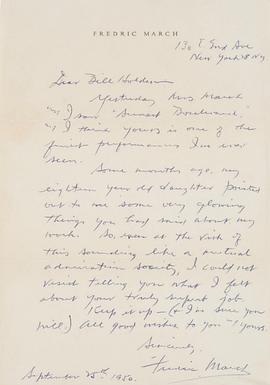 FREDRIC MARCH
New York 8 N.Y.
Dear Bill Holden:
Yesterday Mrs March
and I saw "Sunset Boulevard".
I think yours is one of the
finest performances I've ever
seen.
Some months ago, my
eighteen year old daughter pointed
out to me some very glowing
things you had said about my
work. So, even at the risk of
this sounding like a mutual
admiration society, I could not
resist telling you what I felt
about your truly superb job.
Keep it up — (& I'm sure you
will.) All good wishes to you & yours.
Sincerely,
Fredric March
September 25th 1950.